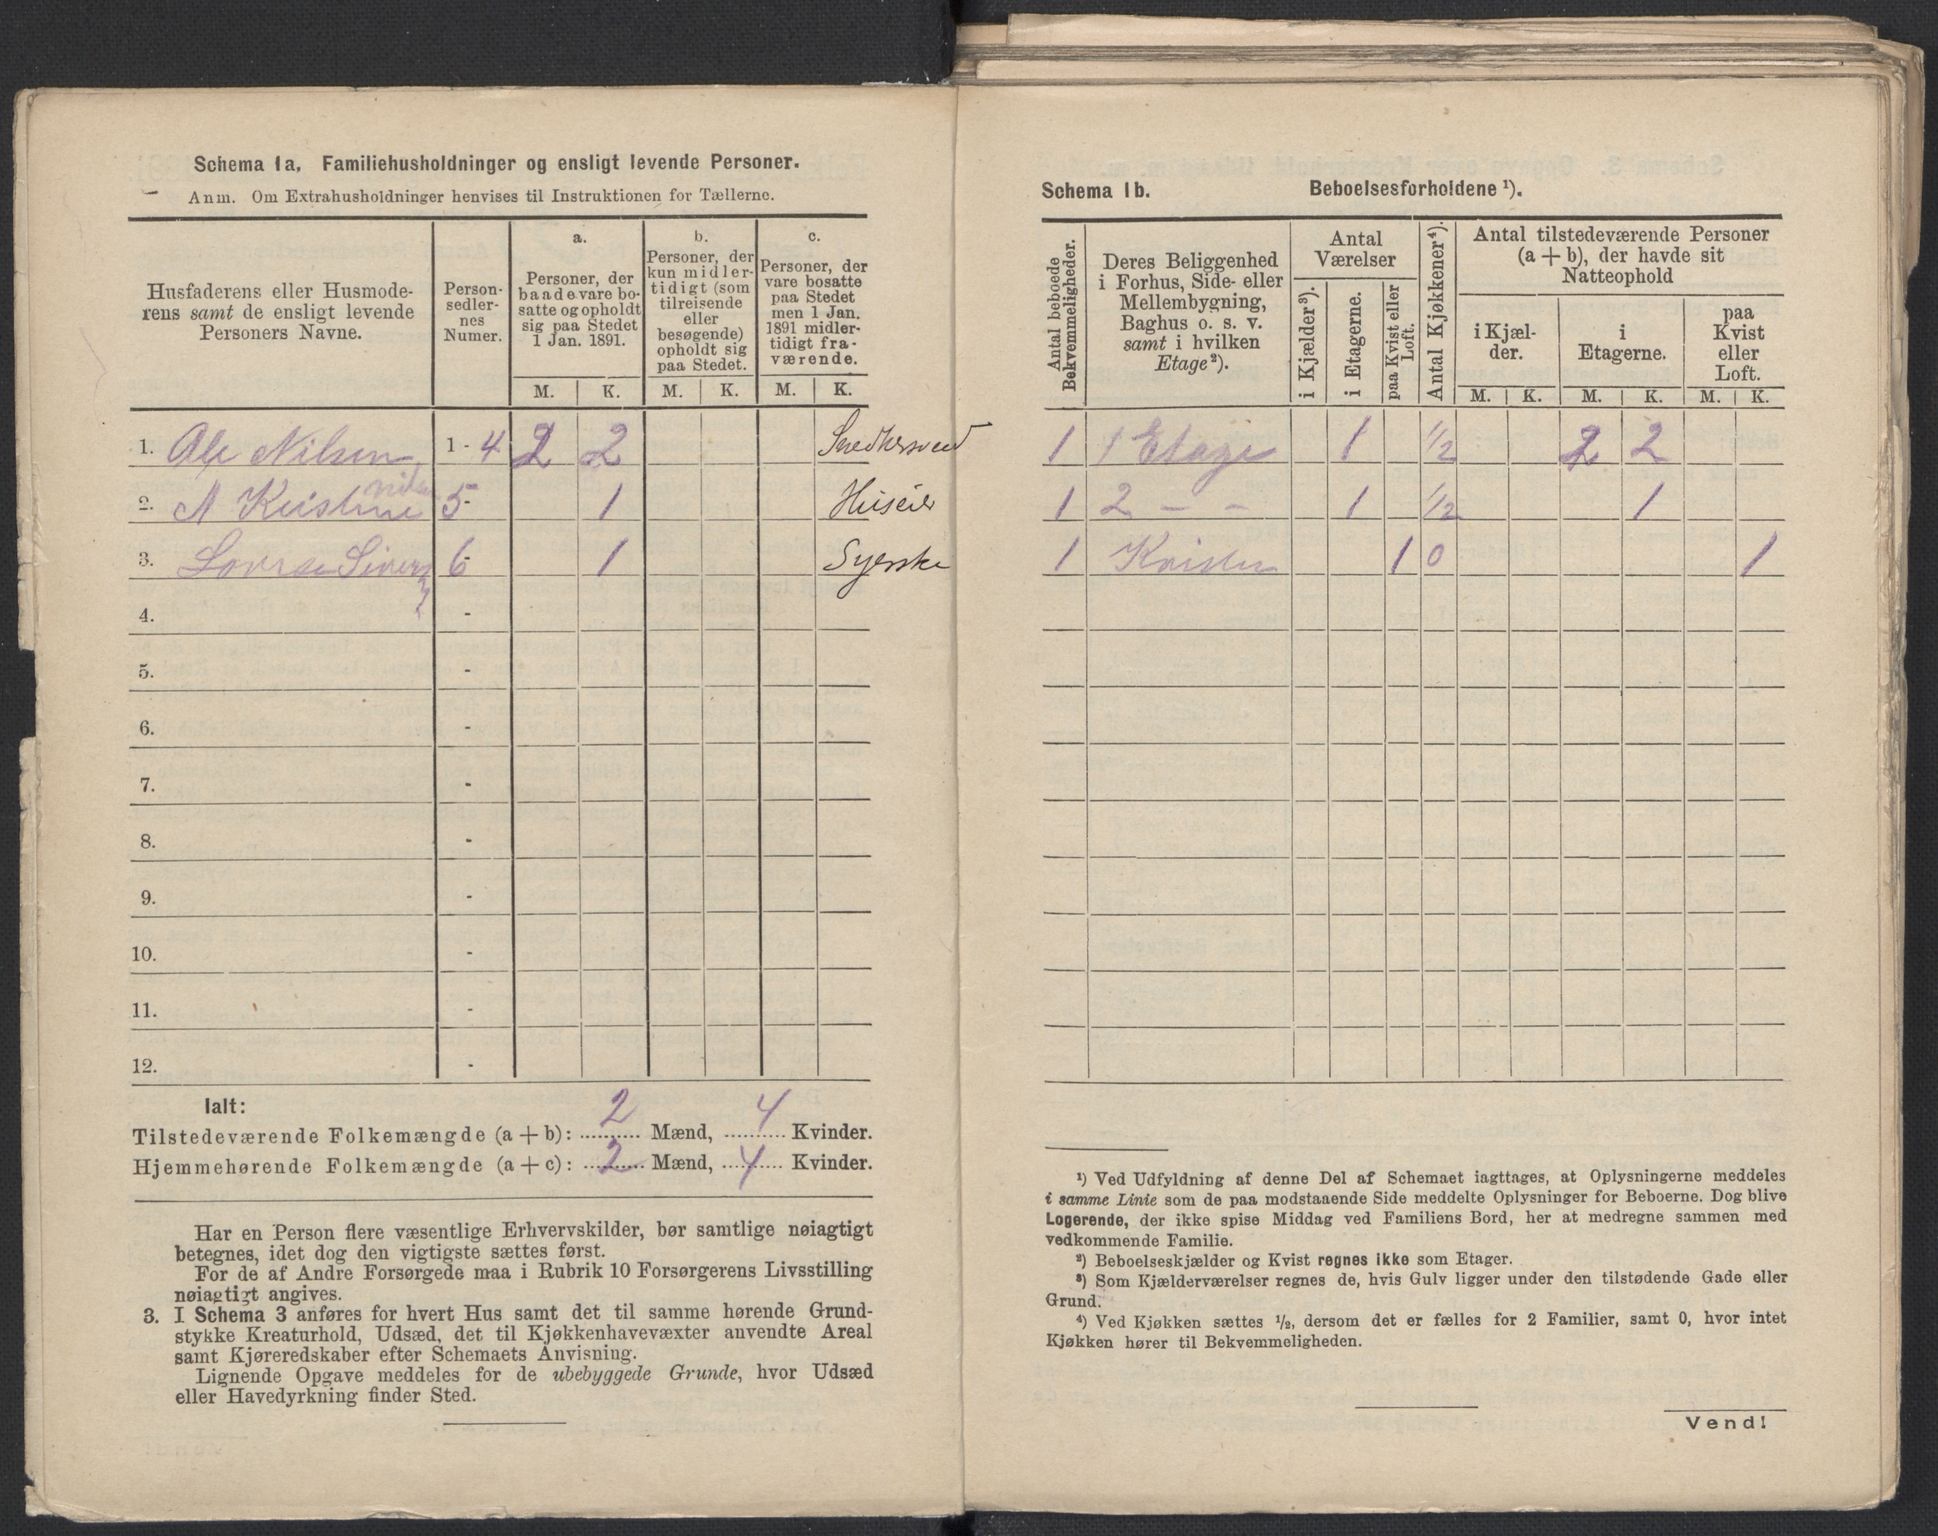 Schema 1a, Familiehusholdninger og ensligt levende Personer.
Anm. Om Extrahusholdninger henvises til Instruktionen for Tællerne.
Husfaderens eller Husmoderens samt de ensligt levende Personers Navne.
Personsedlernes Numer.
a.
Personer, der baade vare bosatte og opholdt sig paa Stedet 1 Jan. 1891.
b.
Personer, der kun midlertidigt (som tilreisende eller besøgende) opholdt sig paa Stedet.
c.
Personer, der vare bosatte paa Stedet men 1 Jan. 1891 midlertidigt fraværende.
M. K. M. K. M. K.
1. Ole Nilsen 1-4 2 2 Snedkersvend
2. A Kristine Nilsen 5- 1 Huseier
3. Lovise Sivers 6- 1 Syerske
4. -
5. -
6. -
7. -
8. -
9. -
10. -
11. -
12. -
Ialt:
Tilstedeværende Folkemængde (a + b): 2 Mænd, 4 Kvinder.
Hjemmehørende Folkemængde (a + c): 2 Mænd, 4 Kvinder.
Har en Person flere væsentlige Erhvervskilder, bør samtlige nøiagtigt
betegnes, idet dog den vigtigste sættes først.
For de af Andre Forsørgede maa i Rubrik 10 Forsørgerens Livsstilling
nøiagtigt angives.
3. I Schema 3 anføres for hvert Hus samt det til samme hørende Grund-
stykke Kreaturhold, Udsæd, det til Kjøkkenhavevæxter anvendte Areal
samt Kjøreredskaber efter Schemaets Anvisning.
Lignende Opgave meddeles for de ubebyggede Grunde, hvor Udsæd
eller Havedyrkning finder Sted.
Schema 1b. Beboelsesforholdene ¹).
Antal beboede Bekvemmeligheder.
Deres Beliggenhed i Forhus, Side- eller Mellembygning, Baghus o. s. v. samt i hvilken Etage²).
Antal Værelser
i Kjælder³).
i Etagerne.
paa Kvist eller Loft.
Antal Kjøkkener⁴).
Antal tilstedeværende Personer (a + b), der havde sit Natteophold
i Kjælder.
i Etagerne.
paa Kvist eller Loft.
M. K. M. K. M. K.
1 1 Etage 1 1/2 2 2
1 2 - - 1 1/2 1
1 Kvisten 1 0 1
¹) Ved Udfyldning af denne Del af Schemaet iagttages, at Oplysningerne meddeles
i samme Linie som de paa modstaaende Side meddelte Oplysninger for Beboerne. Dog blive
Logerende, der ikke spise Middag ved Familiens Bord, her at medregne sammen med
vedkommende Familie.
²) Beboelseskjælder og Kvist regnes ikke som Etager.
³) Som Kjælderværelser regnes de, hvis Gulv ligger under den tilstødende Gade eller
Grund.
⁴) Ved Kjøkken sættes ½, dersom det er fælles for 2 Familier, samt 0, hvor intet
Kjøkken hører til Bekvemmeligheden.
Vend!